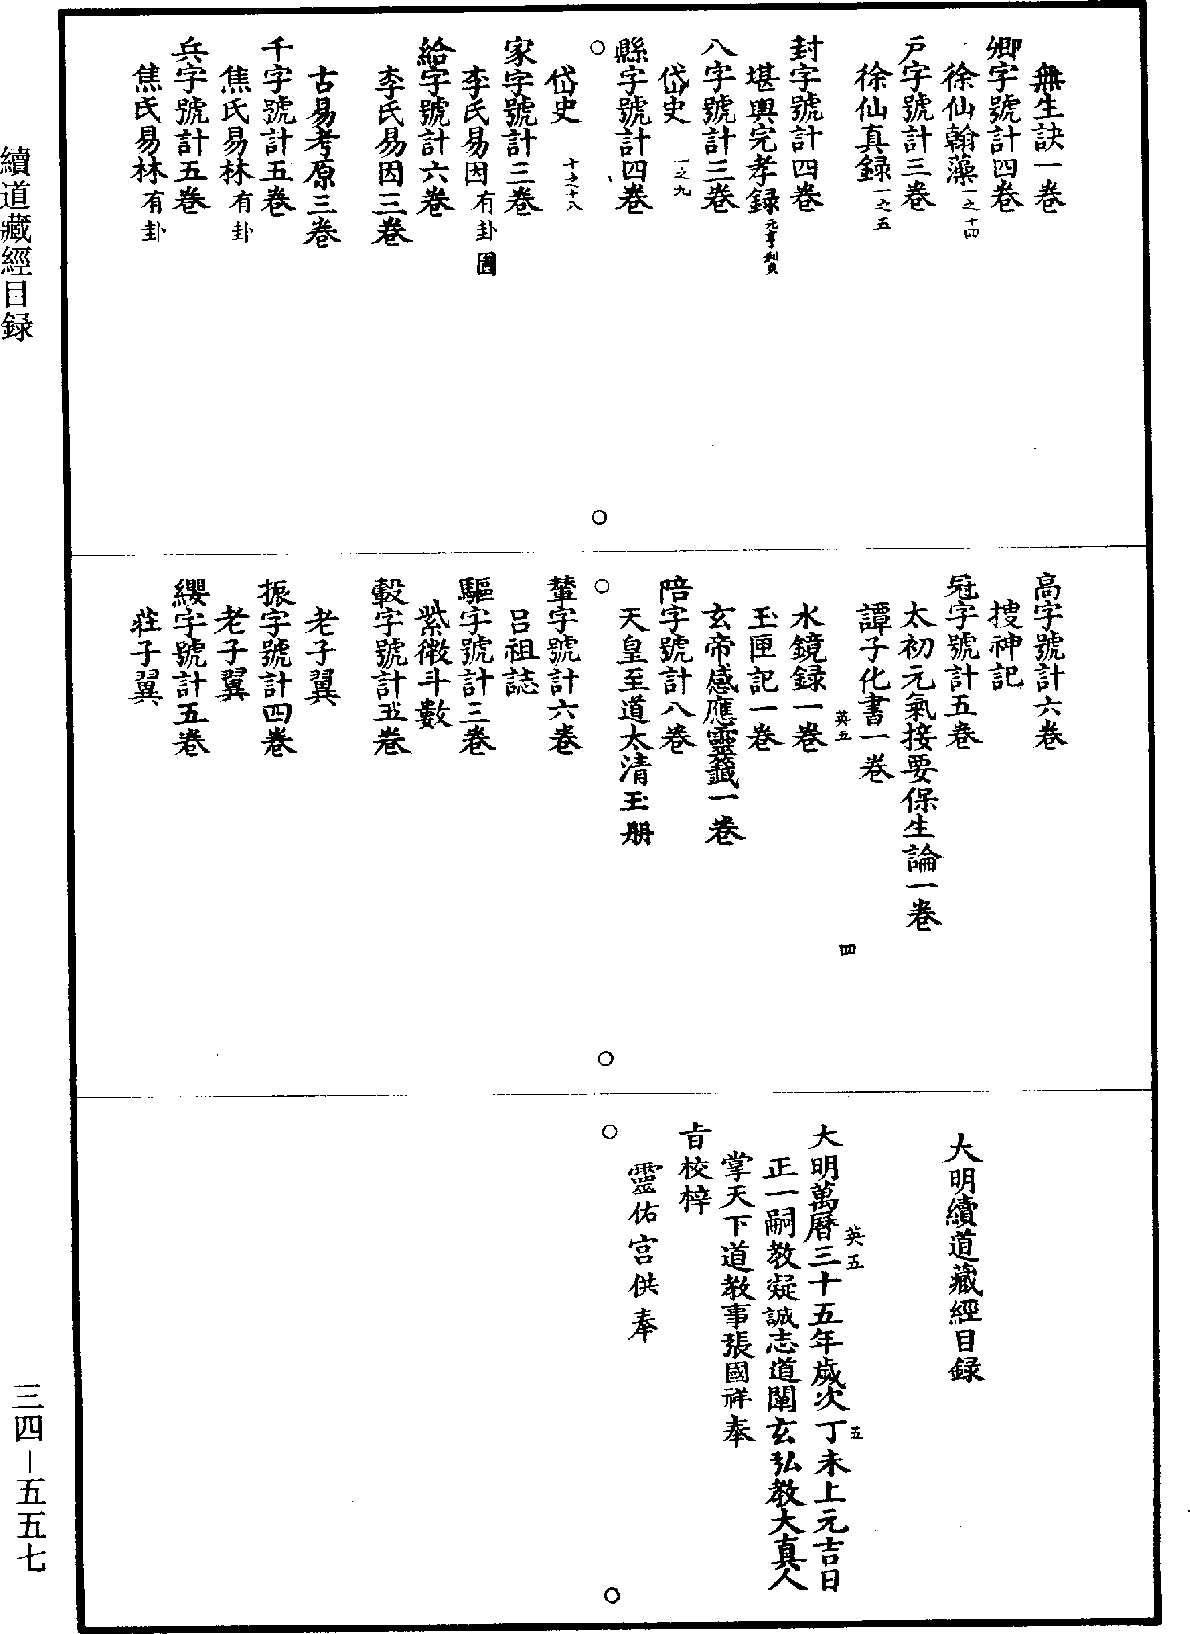 無生訣一卷
卿字號計四卷
徐仙翰藻一之十四
戶字號計三卷
徐仙真録一之五
封字號計四卷
堪輿完孝録元亨利貞
八字號計三卷
岱史 一之九
縣字號計四卷
岱史 十之十八
家字號計三卷
李氏易因有卦圖
給字號計六卷
李氏易因三卷
古易考原三卷
千字號計五卷
焦氏易林有卦
兵字號計五卷
焦氏易林有卦
高字號計六卷
搜神記
冠字號計五卷
太初元氣接要保生論一卷
譚子化書一卷
英五
四
水鏡録一卷
玉匣記一卷
玄帝感應靈籤一卷
陪字號計八卷
天皇至道太清玉册
輦字號計六卷
呂祖誌
驅字號計三卷
紫微斗數
轂字號計五卷
老子翼
振字號計四卷
老子翼
纓字號計五卷
莊子翼
大明續道藏經目録
英五
五
大明萬曆三十五年歲次丁未上元吉日
正一嗣教凝誠志道闡玄弘教大真人
掌天下道教事張國祥奉
旨校梓
靈佑宮供奉
續道藏經目録
三四－五五七